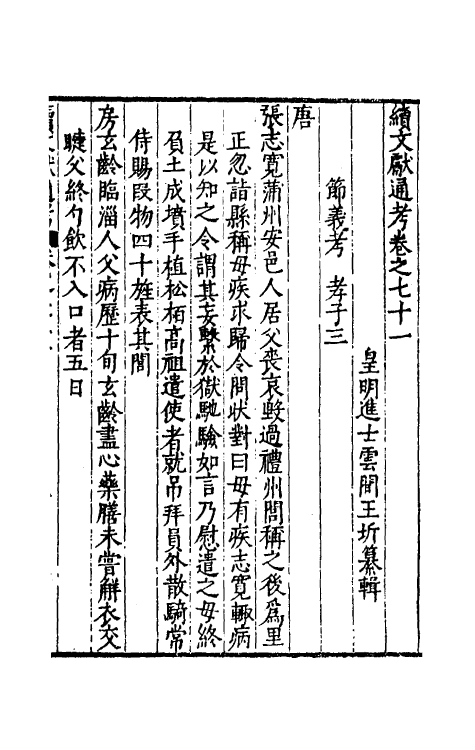 續文獻通考卷之七十一
皇明進士雲間王圻纂輯
節義考 孝子三
唐
張志寬蒲州安邑人居父喪哀毀過禮州閭稱之後爲里
正忽詣縣稱母疾求歸令問狀對曰母有疾志寬輒病
是以知之令謂其妄繫於獄馳驗如言乃慰遣之母終
負土成墳手植松栢高祖遣使者就吊拜員外散騎常
侍賜段物四十旌表其閭
房玄齡臨淄人父病歷十旬玄齡盡心藥膳未嘗解衣交
睫父終勺飲不入口者五日